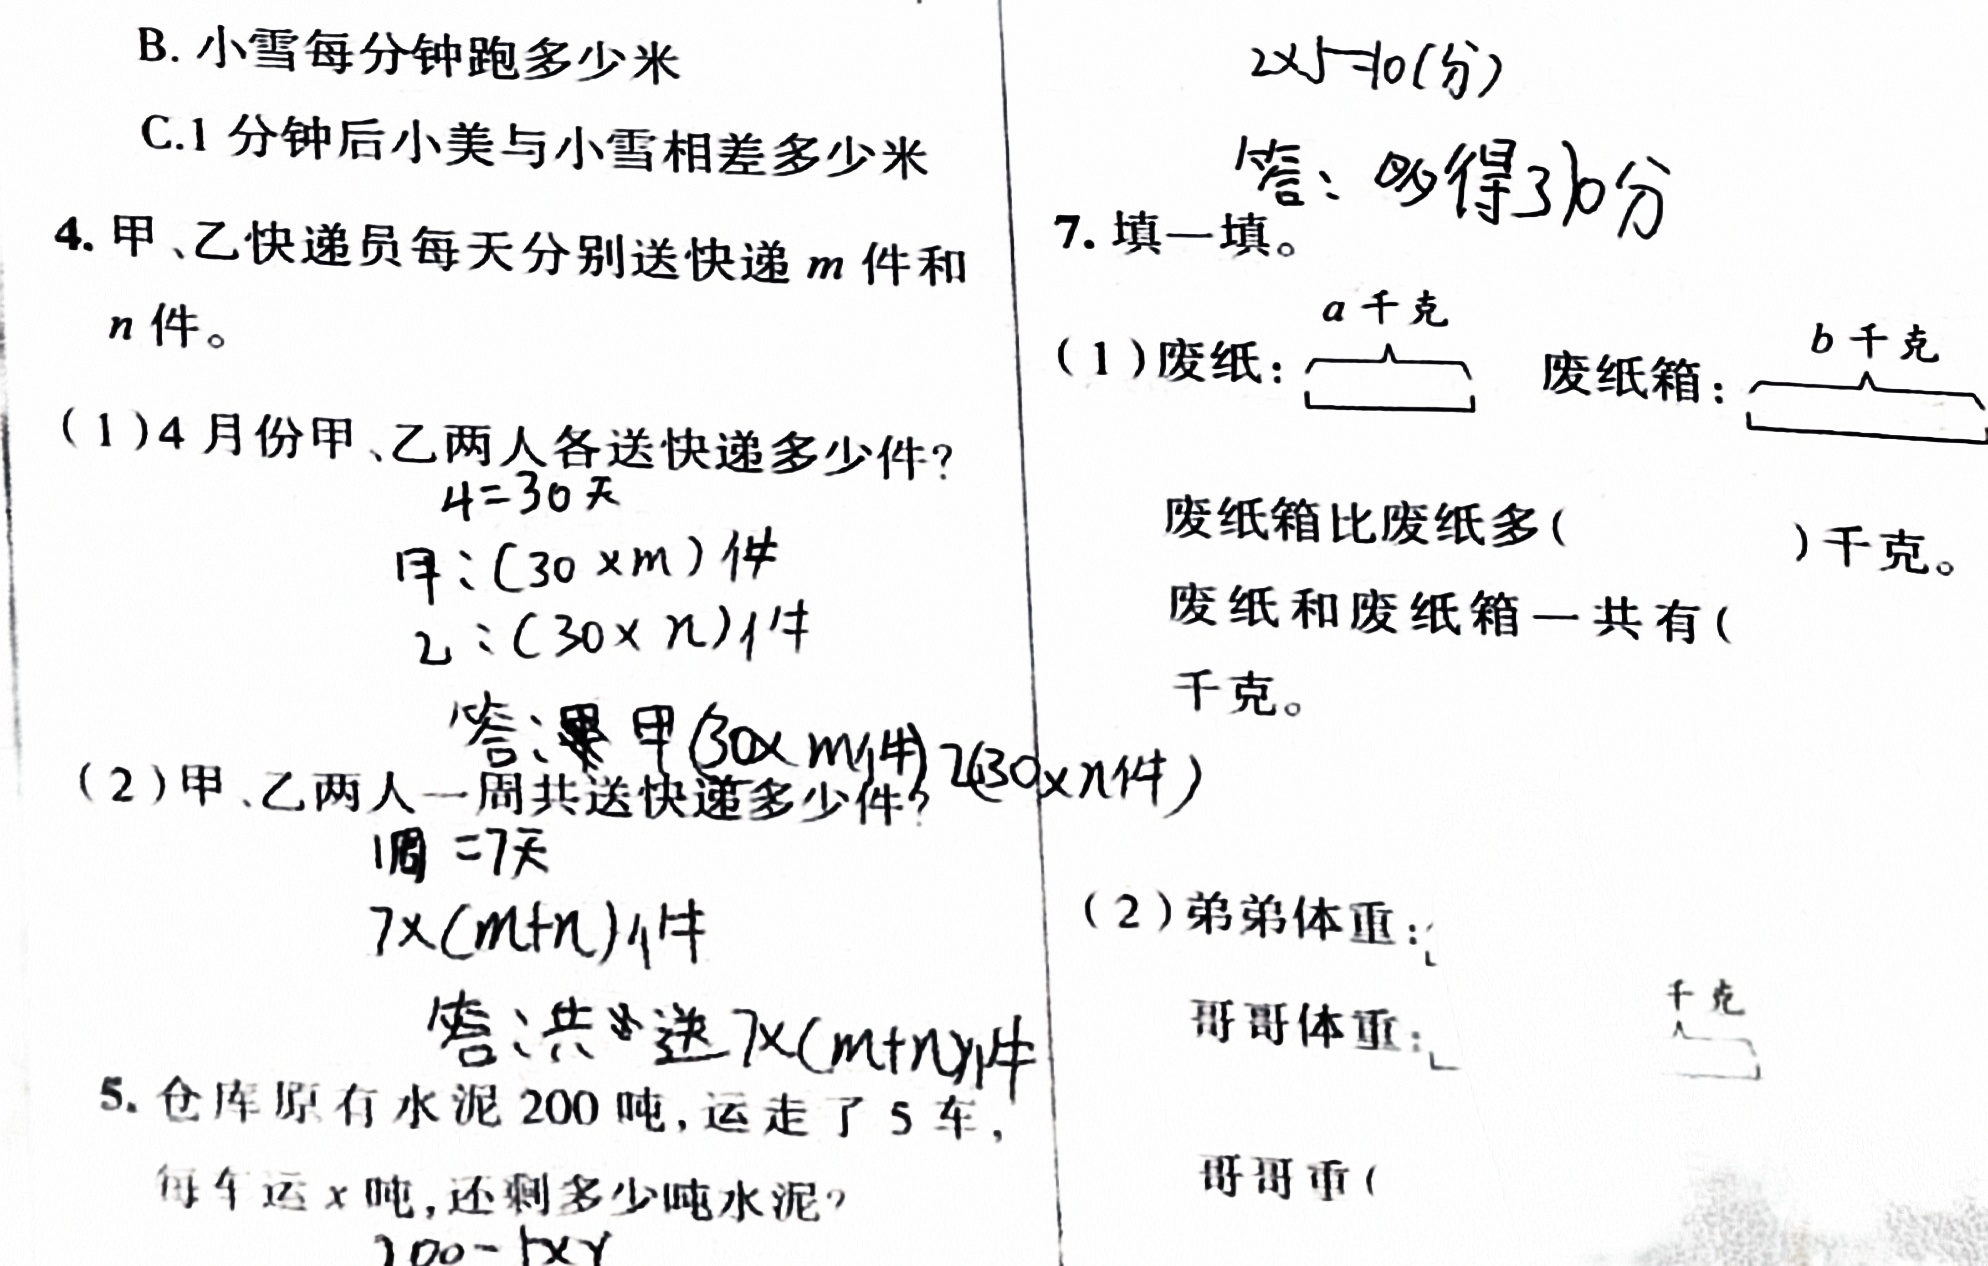 B. 小雪每分钟跑多少米
C.1 分钟后小美与小雪相差多少米
4. 甲、乙快递员每天分别送快递 m 件和
n 件。
(1)4 月份甲、乙两人各送快递多少件?
4=30天
甲:(30×m)件
乙:(30×n)件
答: 甲(30×m件)乙(30×n件)
(2)甲、乙两人一周共送快递多少件?
1周=7天
7×(m+n)件
答:共送7×(m+n)件
5. 仓库原有水泥 200 吨,运走了 5 车,
每车运 x 吨,还剩多少吨水泥?
200-5×x
2×5=10(分)
答:多得了10分
7. 填一填。
a 千克
b 千克
(1)废纸: 废纸箱:
废纸箱比废纸多( )千克。
废纸和废纸箱一共有(
千克。
(2)弟弟体重:
千克
哥哥体重:
哥哥重(